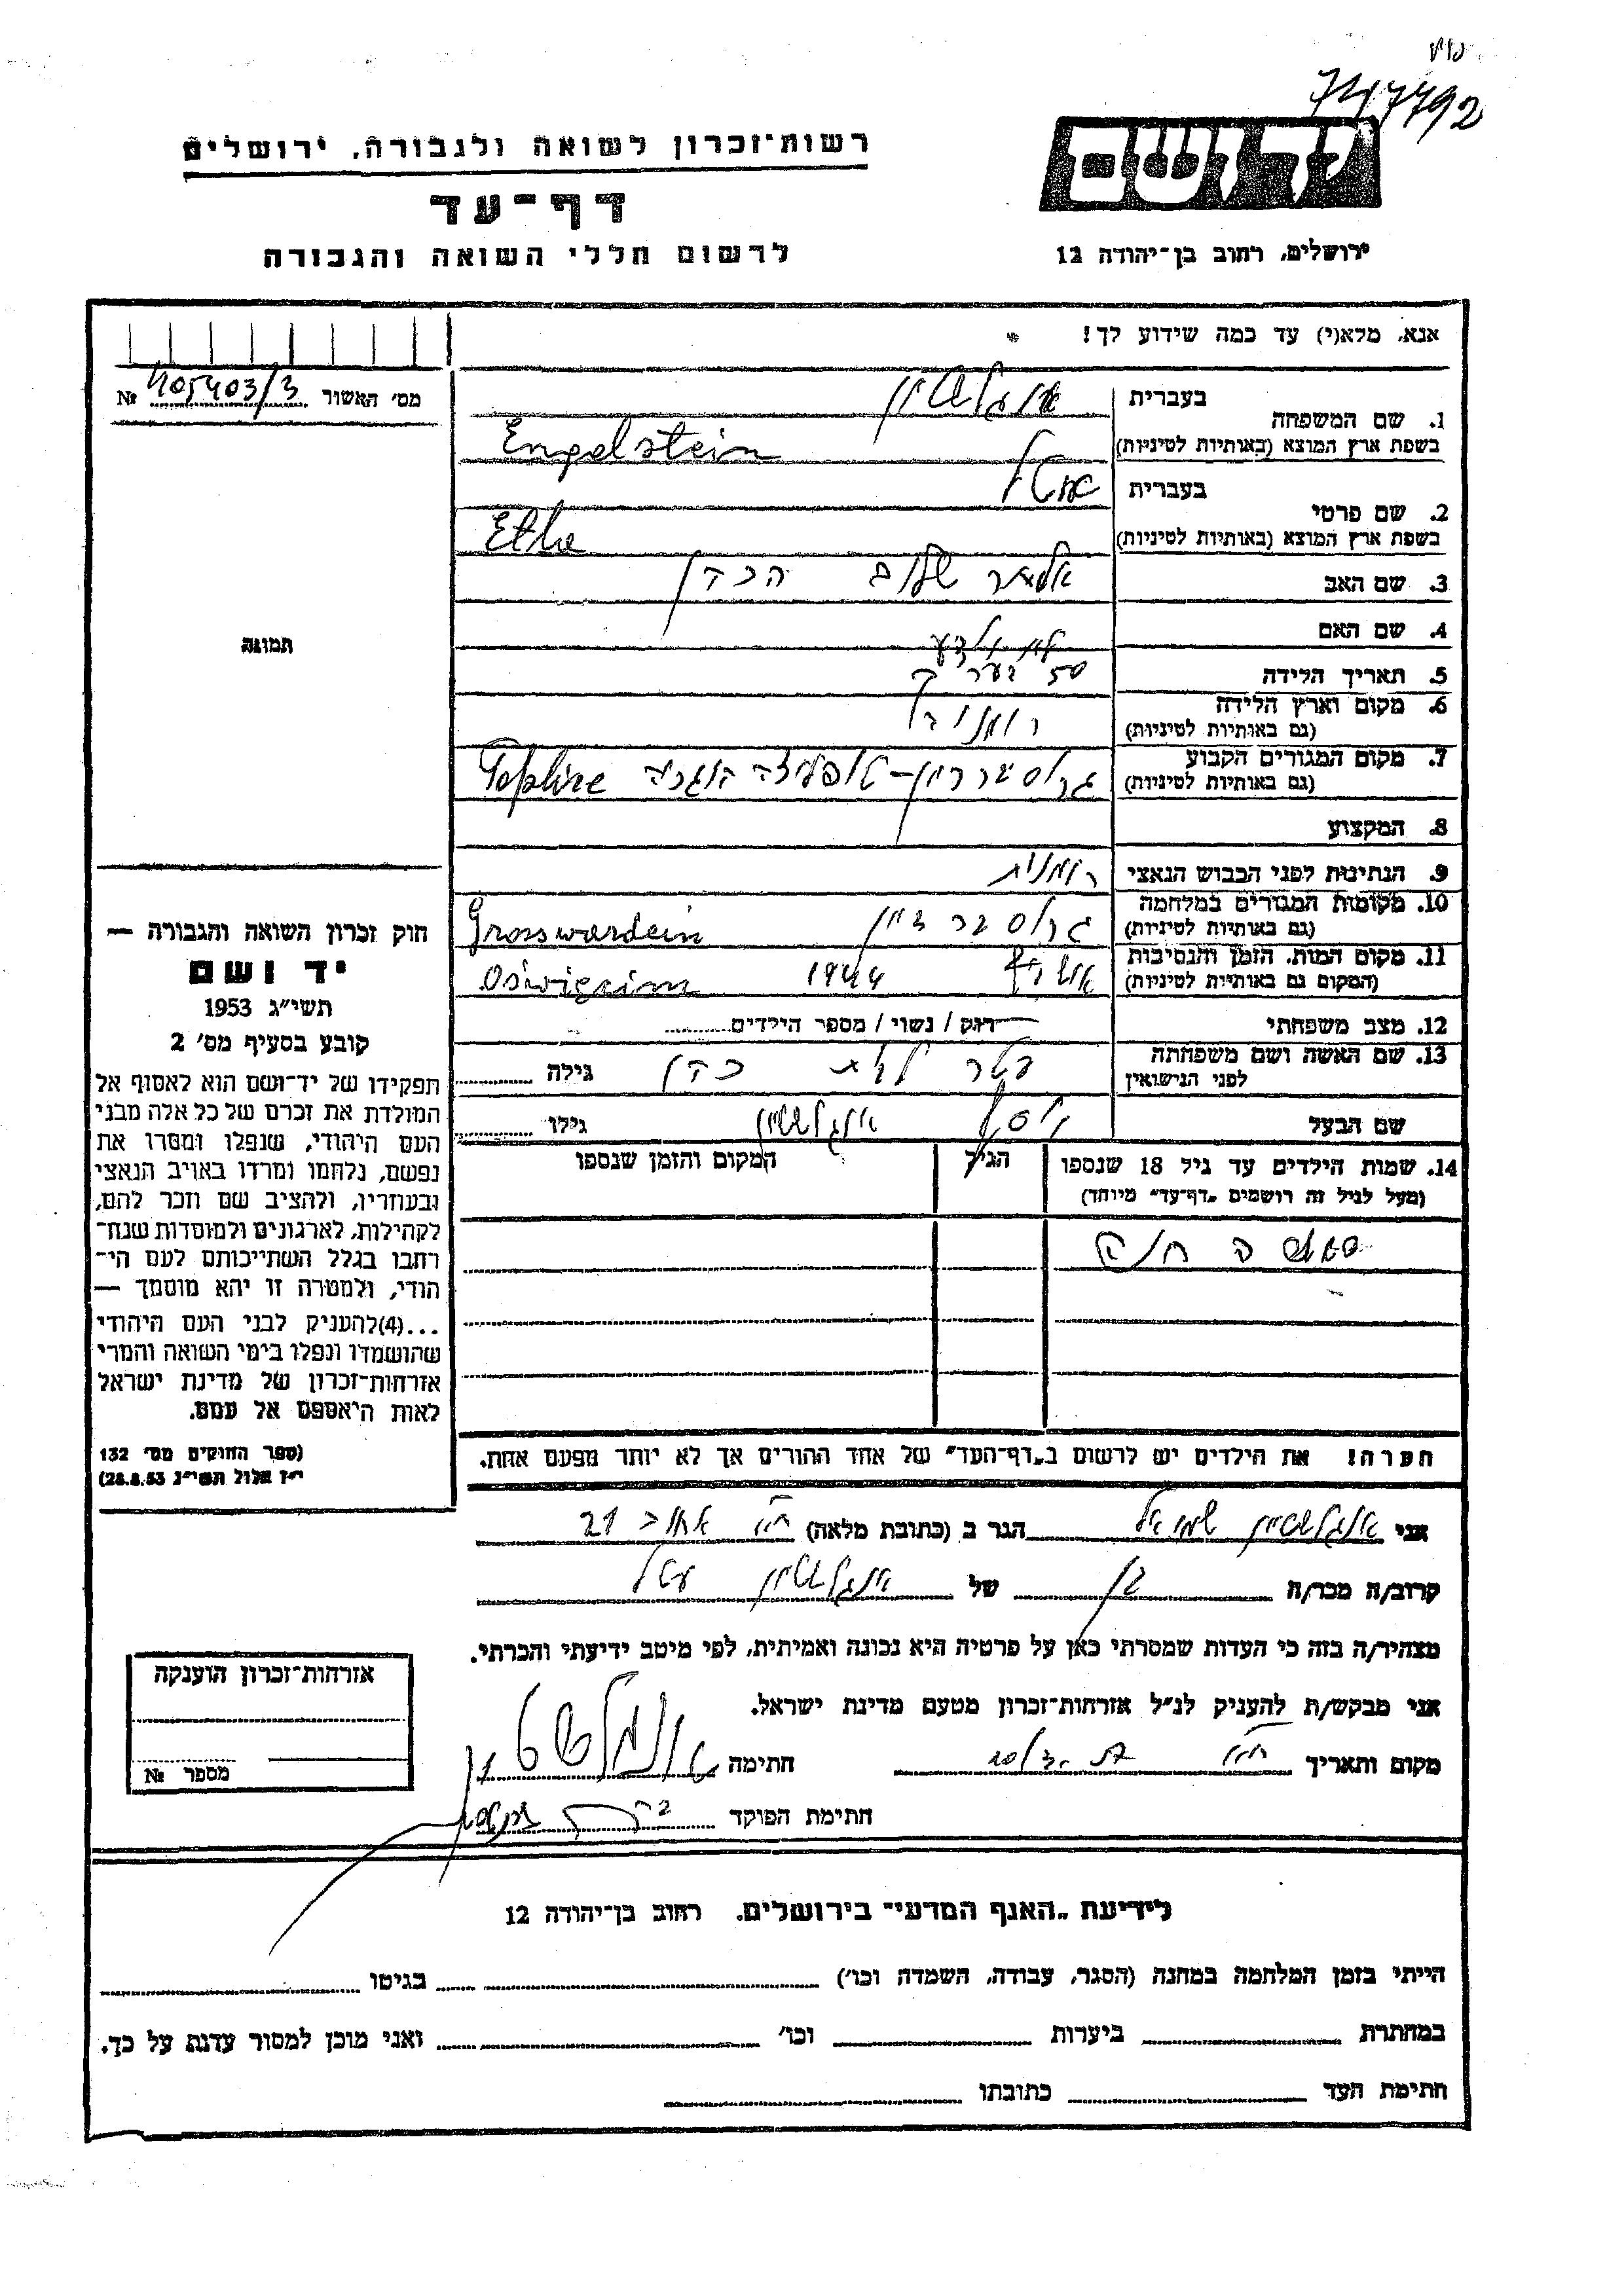 רשות־זכרון לשואה ולגבורה, ירושלים
דף־עד
לרשום חללי השואה והגבורה
ירושלים, רחוב בן־יהודה 12
אנא, מלא(י) עד כמה שידוע לך!
מס׳ האשור 105403/3 №
תמונה
1. שם המשפחה
בעברית אנגלשטיין
בשפת ארץ המוצא (באותיות לטיניות) Engelstein
2. שם פרטי
בעברית
בשפת ארץ המוצא (באותיות לטיניות)
3. שם האב אליעזר שלום הכהן
4. שם האם
5. תאריך הלידה 50 בערך
6. מקום וארץ הלידה
(גם באותיות לטיניות) רומניה
7. מקום המגורים הקבוע
(גם באותיות לטיניות)
8. המקצוע
9. הנתינות לפני הכבוש הנאצי רומנית
10. מקומות המגורים במלחמה
(גם באותיות לטיניות) גרוסוורדיין Grosswardein
11. מקום המות, הזמן והנסיבות
(המקום גם באותיות לטיניות) 1944 Oświęcim
12. מצב משפחתי רוק / נשוי / מספר הילדים
13. שם האשה ושם משפחתה
לפני הנישואין כהן גילה
שם הבעל אנגלשטיין גילו
14. שמות הילדים עד גיל 18 שנספו
(מעל לגיל זה רושמים „דף־עד״ מיוחד)
הגיל
המקום והזמן שנספו
הערה! את הילדים יש לרשום ב„דף־העד״ של אחד ההורים אך לא יותר מפעם אחת.
חוק זכרון השואה והגבורה —
יד ושם
תשי״ג 1953
קובע בסעיף מס׳ 2
תפקידו של יד־ושם הוא לאסוף אל
המולדת את זכרם של כל אלה מבני
העם היהודי, שנפלו ומסרו את
נפשם, נלחמו ומרדו באויב הנאצי
ובעוזריו, ולהציב שם וזכר להם,
לקהילות, לארגונים ולמוסדות שנח־
רבו בגלל השתייכותם לעם הי־
הודי, ולמטרה זו יהא מוסמך —
...(4)להעניק לבני העם היהודי
שהושמדו ונפלו בימי השואה והמרי
אזרחות־זכרון של מדינת ישראל
לאות היאספם אל עמם.
(ספר החוקים מס׳ 132
י״ז אלול תשי״ג 28.8.53)
אני אנגלשטיין שמואל הגר ב (כתובת מלאה) 21
קרוב/ה מכר/ה בן של אנגלשטיין
מצהיר/ה בזה כי העדות שמסרתי כאן על פרטיה היא נכונה ואמיתית, לפי מיטב ידיעתי והכרתי.
אני מבקש/ת להעניק לנ״ל אזרחות־זכרון מטעם מדינת ישראל.
מקום ותאריך חתימה
חתימת הפוקד
אזרחות־זכרון הוענקה
מספר №
לידיעת „האגף המדעי״ בירושלים, רחוב בן־יהודה 12
הייתי בזמן המלחמה במחנה (הסגר, עבודה, השמדה וכו׳) בגיטו
במחתרת ביערות וכו׳ ואני מוכן למסור עדות על כך.
חתימת העד כתובתו